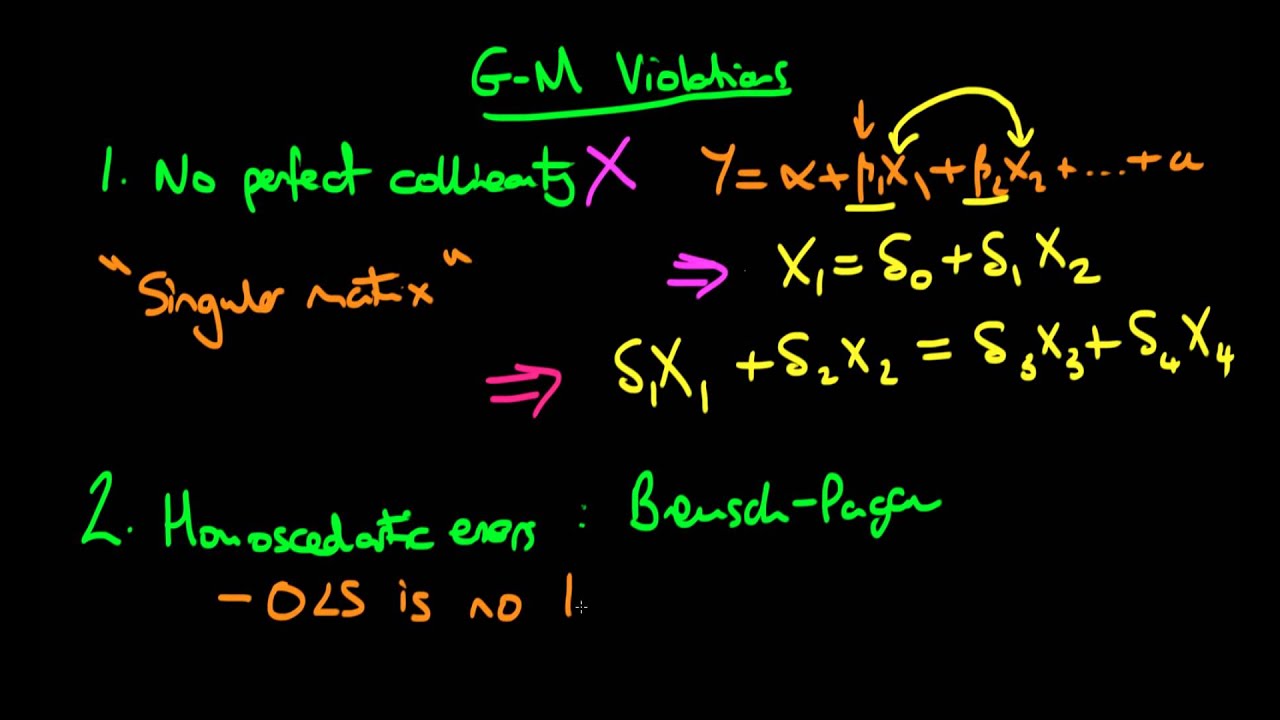 G-M Violations
1. No perfect collinearity X Y = α + β₁X₁ + β₂X₂ + ... + u
⇒ X₁ = δ₀ + δ₁ X₂
"Singular matrix"
⇒ δ₁X₁ + δ₂X₂ = δ₃X₃ + δ₄X₄
2. Homoscedastic errors : Breusch-Pagan
- OLS is no l